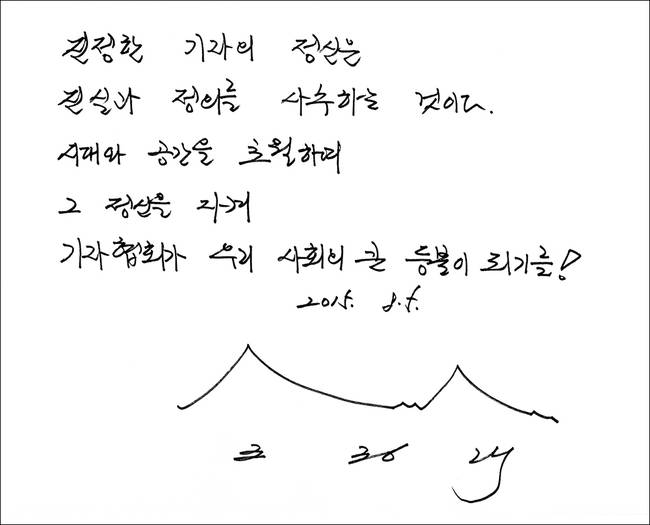 진정한 기자의 정신은
진실과 정의를 사수하는 것이다.
시대와 공간을 초월하며
그 정신을 지켜
기자협회가 우리 사회의 큰 등불이 되기를!
2015. 8. 5.